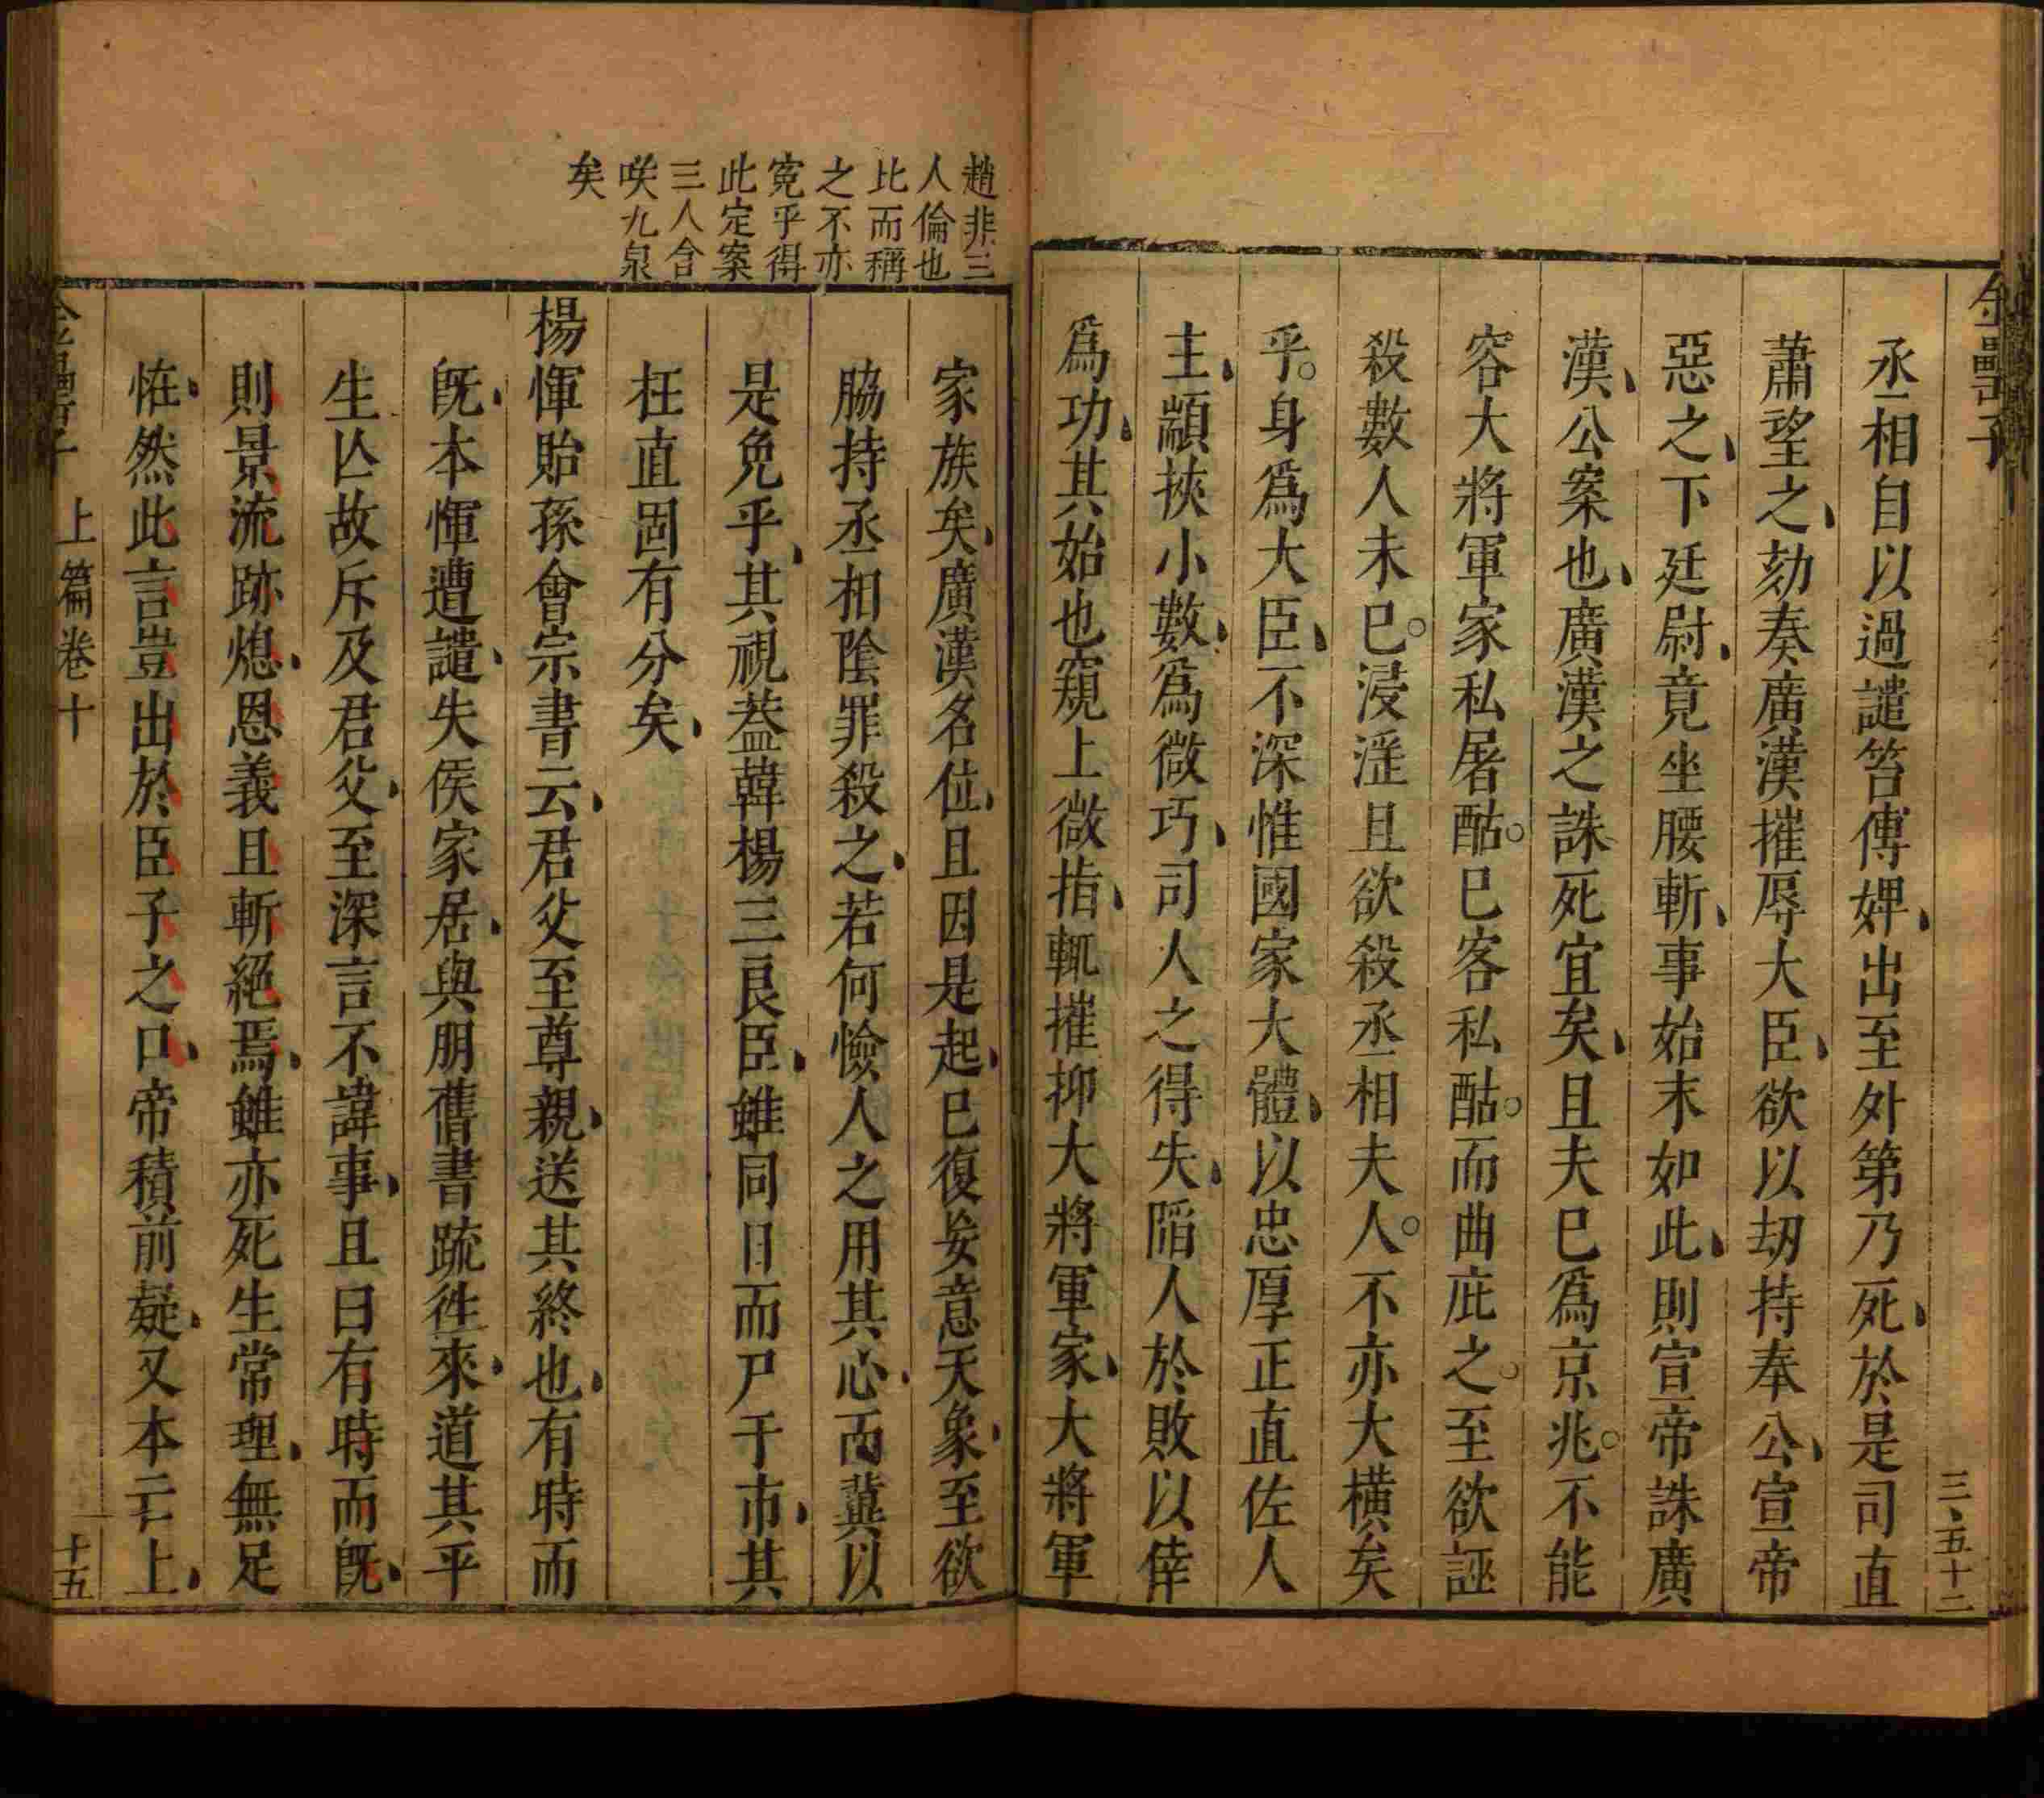 金罍子
三、五十二
丞相自以過譴笞傅婢出至外第乃死於是司直
蕭望之劾奏廣漢摧辱大臣欲以刼持奉公宣帝
惡之下廷尉竟坐腰斬事始末如此則宣帝誅廣
漢公案也廣漢之誅死宜矣且夫巳爲京兆不能
容大將軍家私屠酤巳客私酤而曲庇之至欲誣
殺數人未巳浸滛且欲殺丞相夫人不亦大横矣
乎身爲大臣不深惟國家大體以忠厚正直佐人
主顓挾小數爲微巧司人之得失陷人於敗以倖
爲功其始也窺上微指輒摧抑大將軍家大將軍
趙非三
人倫也
比而稱
之不亦
寃乎得
此定案
三人含
咲九泉
矣
家族矣廣漢名位且因是起巳復妄意天象至欲
脇持丞相隂罪殺之若何憸人之用其心而冀以
是免乎其視葢韓楊三良臣雖同日而尸于市其
枉直固有分矣
楊惲貽孫會宗書云君父至尊親送其終也有時而
旣本惲遭譴失侯家居與朋舊書疏徃來道其平
生亾故斥及君父至深言不諱事且曰有時而旣
則景流跡熄恩義且斬絕焉雖亦死生常理無足
恠然此言豈出於臣子之口帝積前疑又本云上
金罍子
上篇卷十
十五